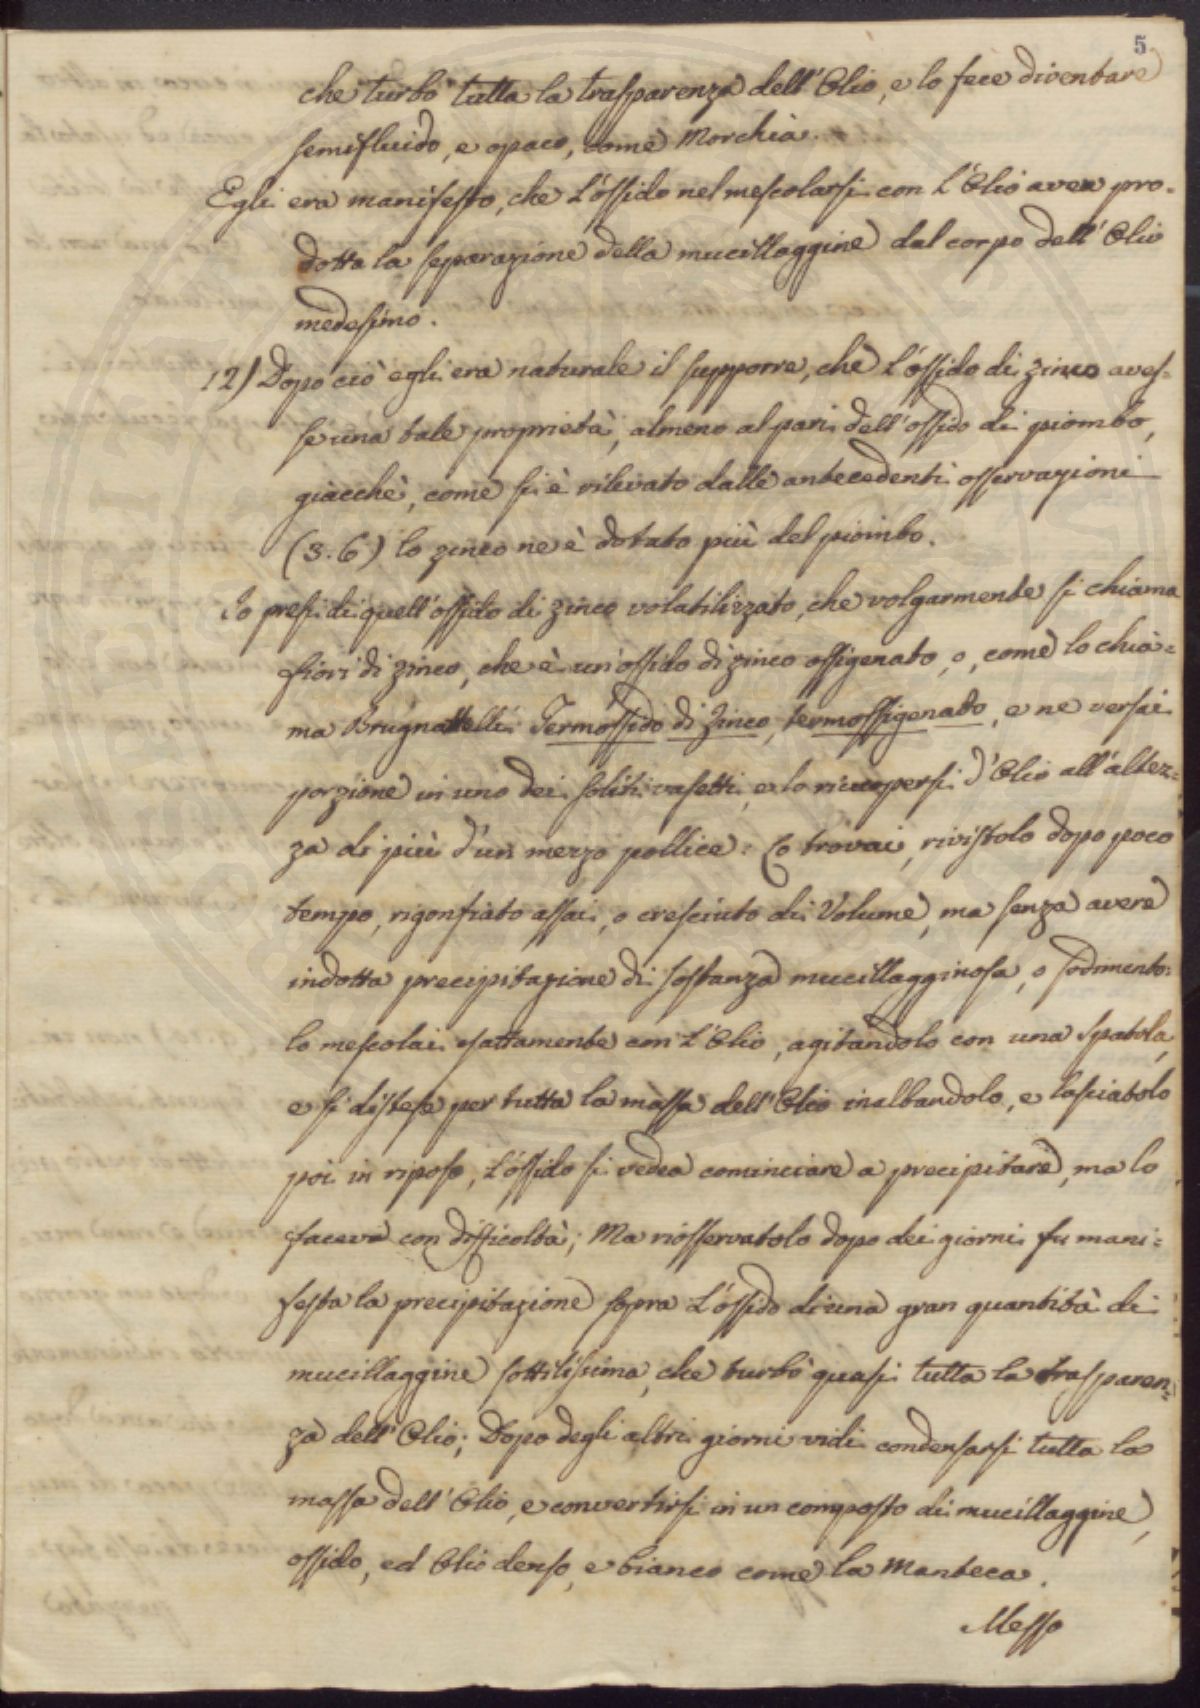 5
che turbò tutta la trasparenza dell'Olio, e lo fece diventare
semifluido, e opaco, come Morchia.
Egli era manifesto, che l'ossido nel mescolarsi con l'Olio aver pro-
dotta la separazione della mucillaggine dal corpo dell'Olio
medesimo.
12) Dopo ciò egli era naturale il supporre, che l'ossido di zinco aves-
se una tale proprietà, almeno al pari dell'ossido di piombo,
giacchè, come si è rilevato dalle antecedenti osservazioni
(3.6) lo zinco ne è dotato più del piombo.
Io presi di quell'ossido di zinco volatilizzato, che volgarmente si chiama
fiori di zinco, che è un'ossido di zinco ossigenato, o, come lo chia=
ma Brugnattelli Termossido di Zinco, termossigenato, e ne versai
porzione in uno dei soliti vasetti, e lo ricuopersi d'Olio all'altez=
za di più d'un mezzo pollice: Lo trovai, rivistolo dopo poco
tempo, rigonfiato assai, o cresciuto di Volume, ma senza avere
indotta precipitazione di sostanza mucillagginosa, o sedimento:
lo mescolai esattamente con l'Olio, agitandolo con una spatola,
e si distese per tutta la massa dell'Olio inalbandolo, e lasciatolo
poi in riposo, l'ossido si vedea cominciare a precipitare, ma lo
faceva con difficoltà; Ma riosservatolo dopo dei giorni fu mani=
festa la precipitazione sopra l'ossido di una gran quantità di
mucillaggine sottilissima, che turbò quasi tutta la trasparen=
za dell'Olio; Dopo degli altri giorni vidi condensarsi tutta la
massa dell'Olio, e convertirsi in un composto di mucillaggine,
ossido, ed Olio denso, e bianco come la Manteca.
Messo